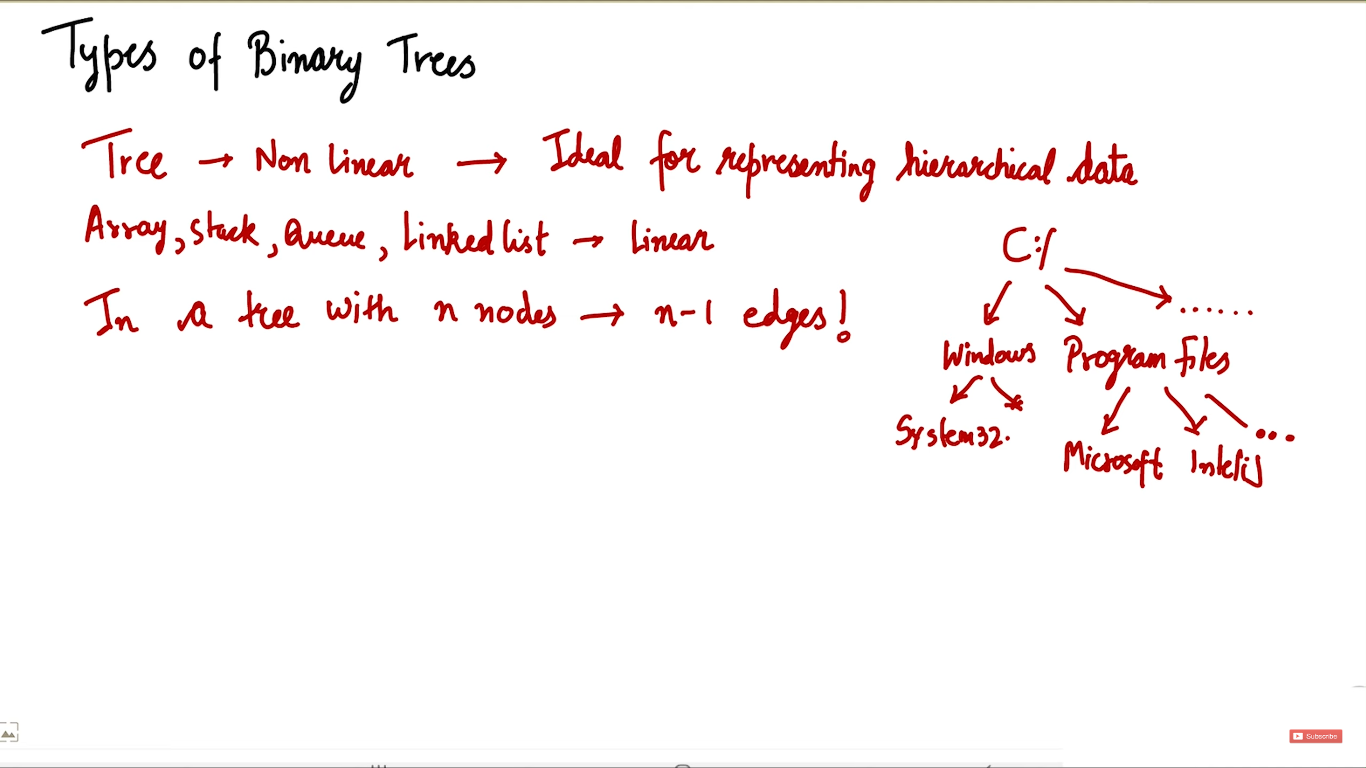 Types of Binary Trees
Tree → Non linear → Ideal for representing hierarchical data
Array, Stack, Queue, Linked list → linear
C:/
In a tree with n nodes → n-1 edges!
......
Windows Program files
System32.
Microsoft Intelij
Subscribe